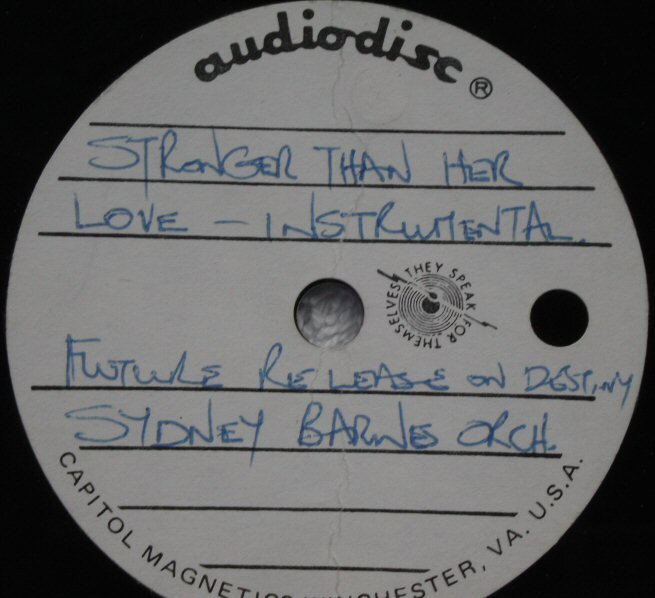 audiodisc ®
STRONGER THAN HER
LOVE — INSTRUMENTAL.
THEY SPEAK FOR THEMSELVES
FUTURE RELEASE ON DESTINY
SYDNEY BARNES ORCH.
CAPITOL MAGNETICS WINCHESTER, VA. U.S.A.